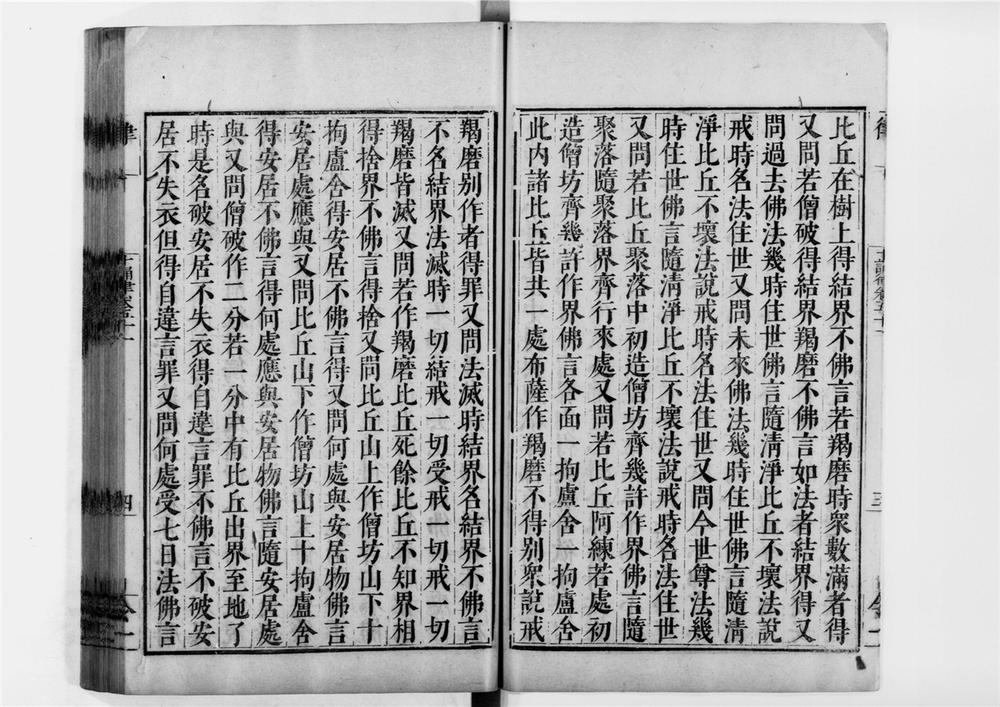 比丘在樹上得結界不佛言若羯磨時衆數滿者得
又問若僧破得結界羯磨不佛言如法者結界得又
問過去佛法幾時住世佛言隨清淨比丘不壞法說
戒時名法住世又問未來佛法幾時住世佛言隨清
淨比丘不壞法說戒時名法住世又問今世尊法幾
時住世佛言隨清淨比丘不壞法說戒時名法住世
又問若比丘聚落中初造僧坊齊幾許作界佛言隨
聚落隨聚落界齊行來處又問若比丘阿練若處初
造僧坊齊幾許作界佛言各面一拘盧舍一拘盧舍
此内諸比丘皆共一處布薩作羯磨不得别衆說戒
三
羯磨别作者得罪又問法滅時結界名結界不佛言
不名結界法滅時一切結戒一切受戒一切戒一切
羯磨皆滅又問若作羯磨比丘死餘比丘不知界相
得捨界不佛言得捨又問比丘山上作僧坊山下十
拘盧舍得安居不佛言得又問何處與安居物佛言
安居處應與又問比丘山下作僧坊山上十拘盧舍
得安居不佛言得何處應與安居物佛言隨安居處
與又問僧破作二分若一分中有比丘出界至地了
時是名破安居不失衣得自違言罪不佛言不破安
居不失衣但得自違言罪又問何處受七日法佛言
律
四